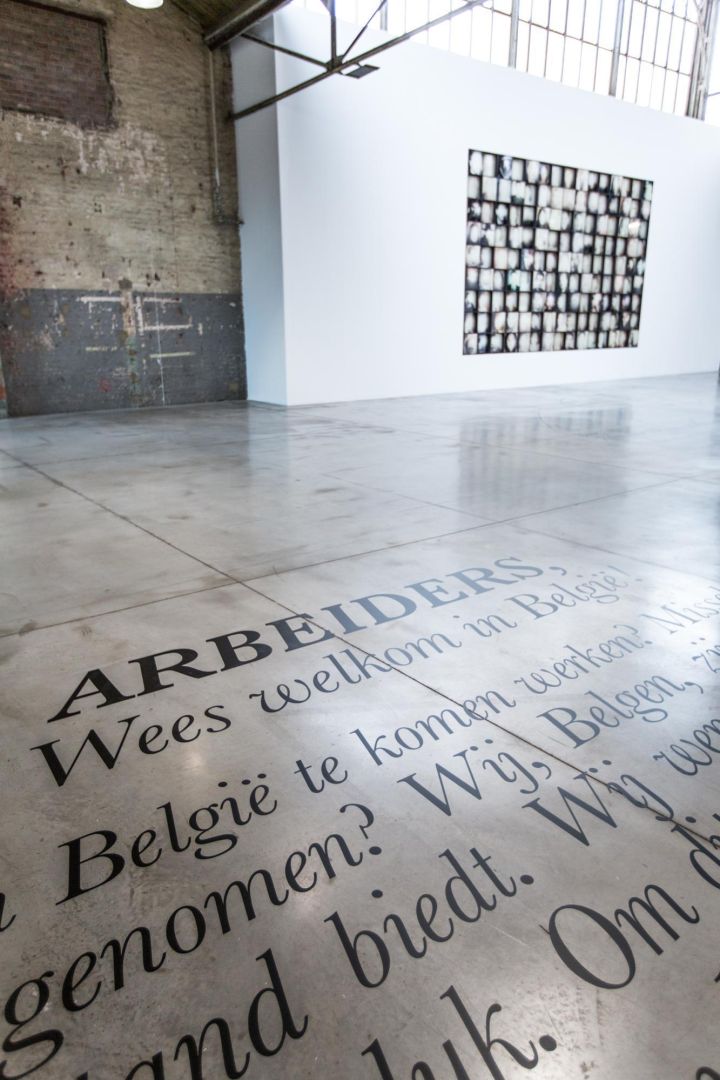 ARBEIDERS,
Wees welkom in België!
België te komen werken?
genomen? Wij, Belgen,
land biedt. Wij
Om